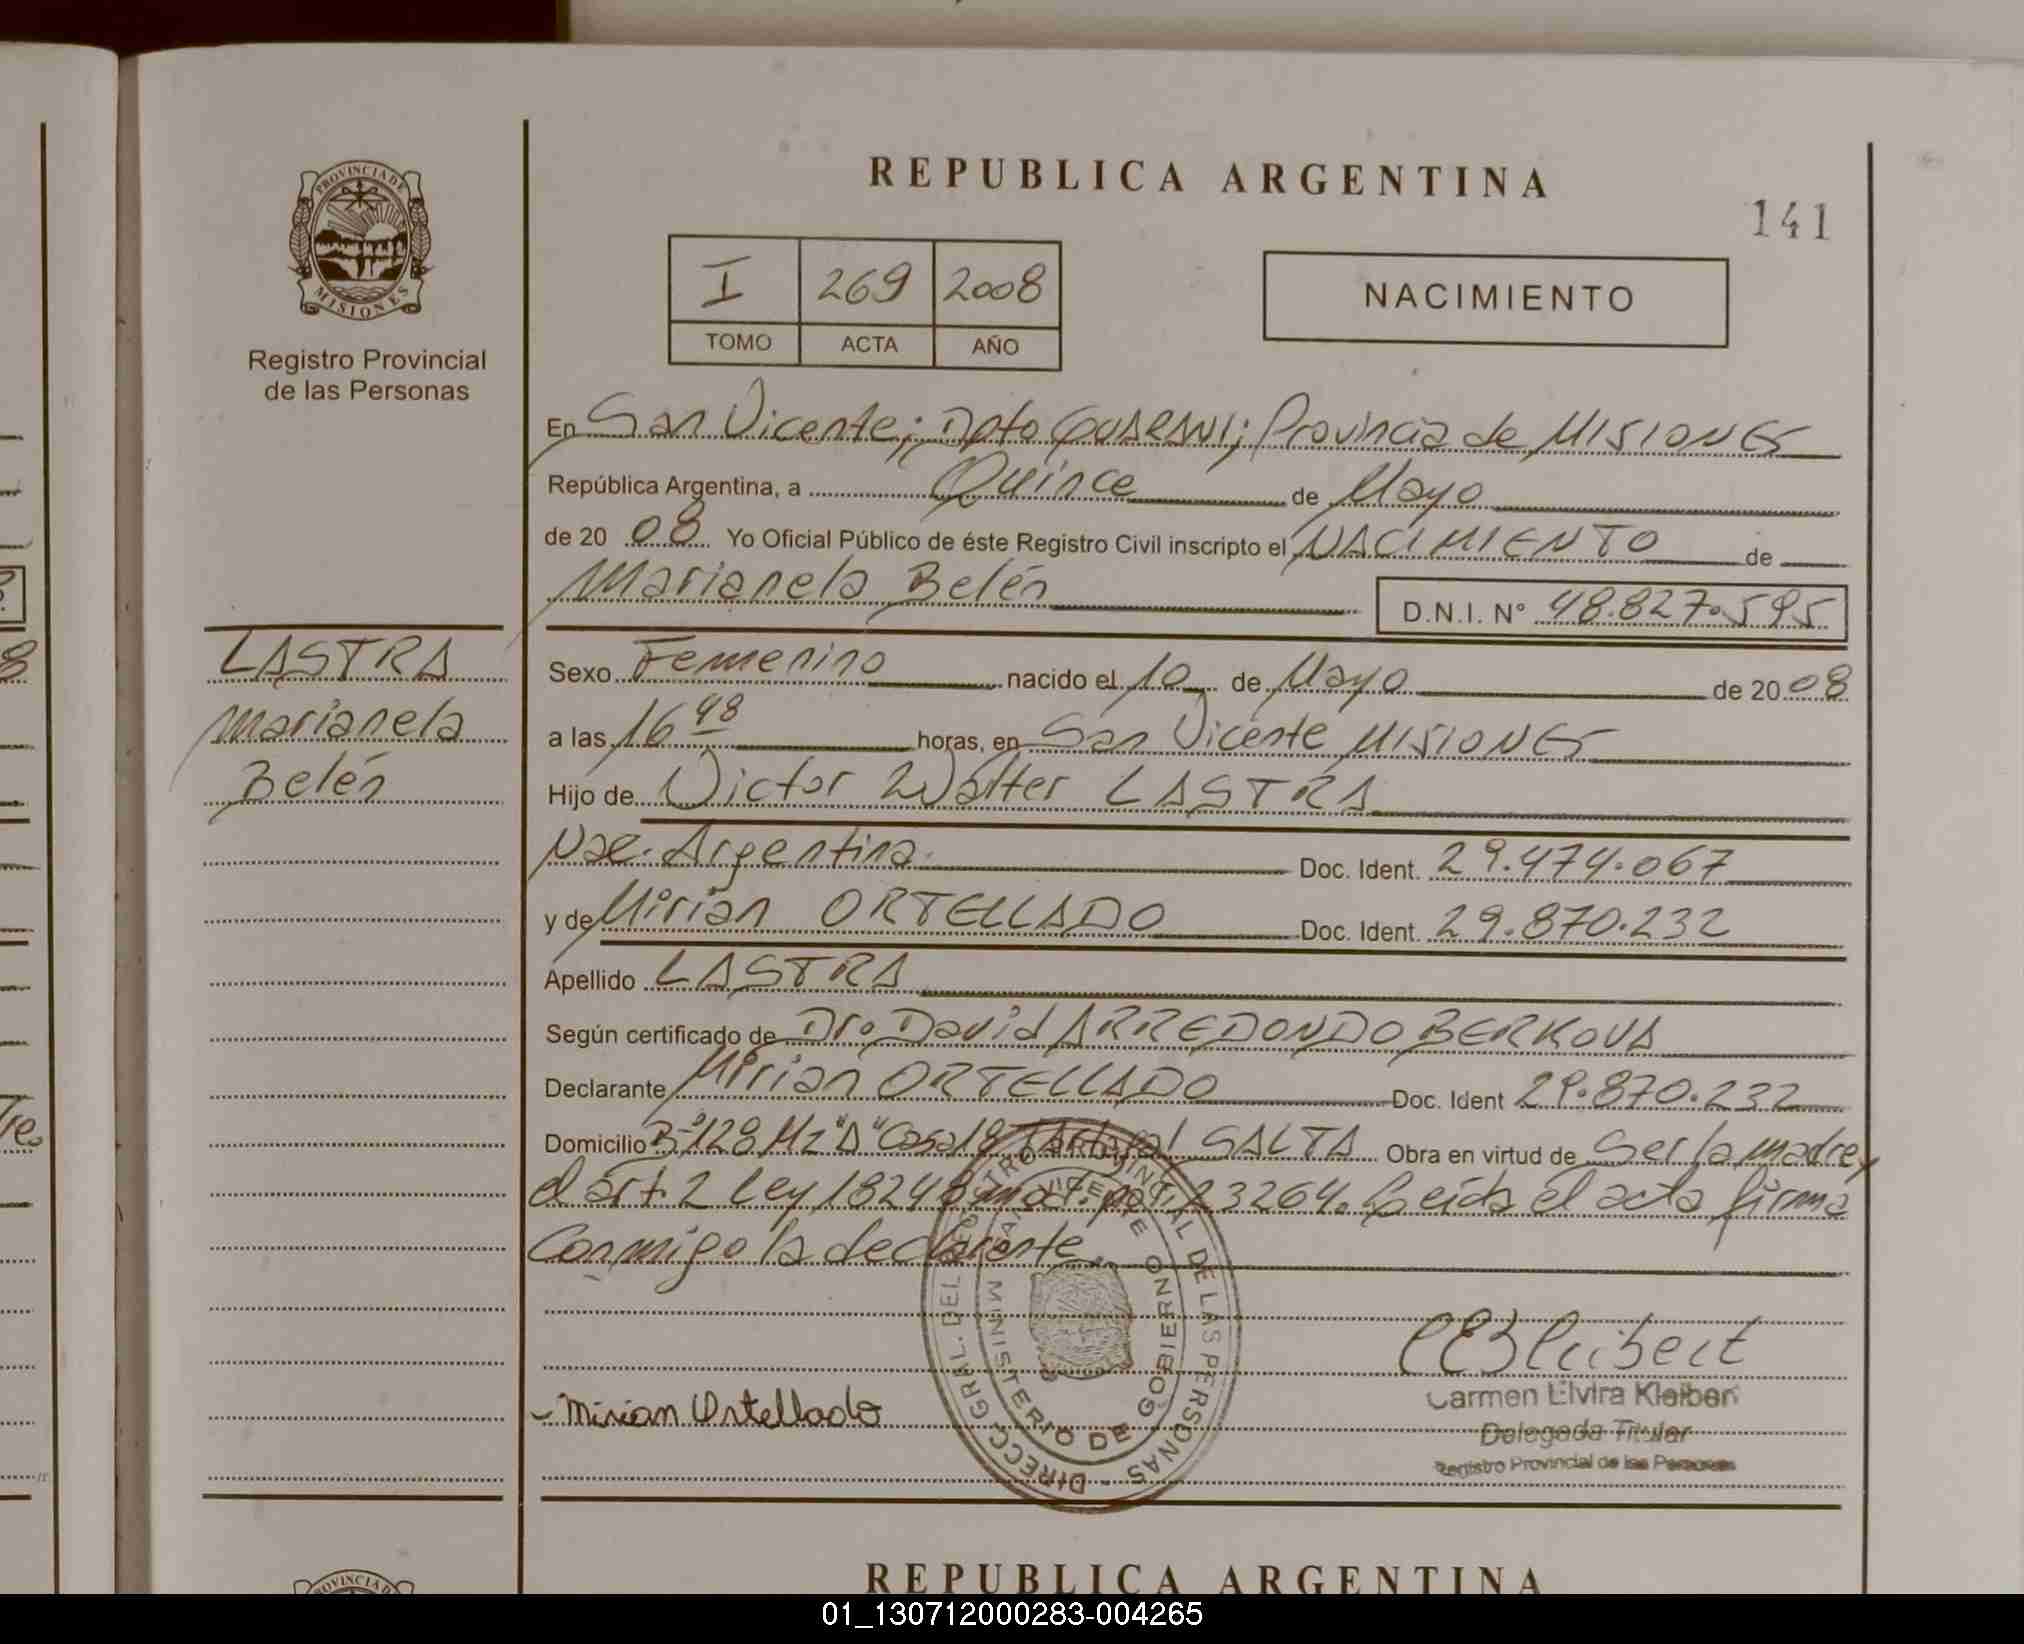 REPUBLICA ARGENTINA
141
PROVINCIA DE
MISIONES
Registro Provincial
de las Personas
I 269 2008
TOMO ACTA AÑO
NACIMIENTO
En San Vicente; Dpto Guaraní; Provincia de MISIONES
República Argentina, a Quince de Mayo
de 20 08 Yo Oficial Público de éste Registro Civil inscripto el NACIMIENTO de
Marianela Belén D.N.I. N° 48.827.595
LASTRA
Marianela
Belén
Sexo Femenino nacido el 10 de Mayo de 20 08
a las 16 48 horas, en San Vicente MISIONES
Hijo de Victor Walter LASTRA
Nac. Argentina. Doc. Ident. 29.474.067
y de Mirian ORTELLADO Doc. Ident. 29.870.232
Apellido LASTRA
Según certificado de Dr. David ARREDONDO BERKOVA
Declarante Mirian ORTELLADO Doc. Ident 29.870.232
Domicilio B° 128 Mz "A" Casa 18 Tartagal SALTA Obra en virtud de Ser la madre y
el art. 2 Ley 18248 mod. por 23264. Leída el acta firma
Conmigo la declarante
DIRECC. GRAL. DEL REGISTRO PROVINCIAL DE LAS PERSONAS -
MINISTERIO DE GOBIERNO
SAN VICENTE
Mirian Ortellado
Carmen Elvira Kleiber
Delegada Titular
Registro Provincial de las Personas
REPUBLICA ARGENTINA
PROVINCIA D
01_130712000283-004265